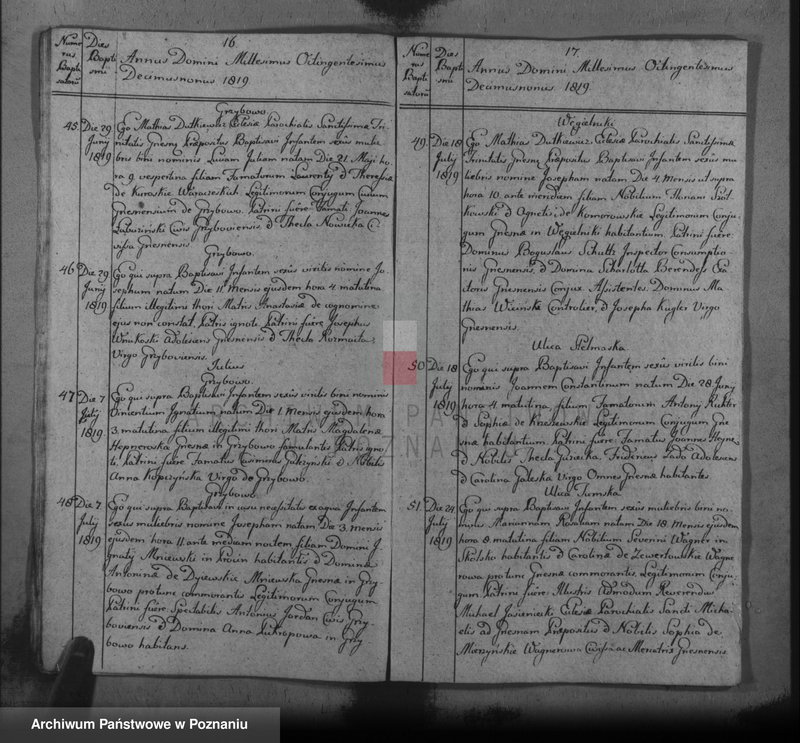 Nume
rus
Bapti
satorũ
Dies
Bapti
smi
16
Annus Domini Millesimus Octingentesimus
Decimusnonus 1819
Grzybowo
45. Die 29 Junij 1819
Ego Mathias Dutkiewicz Eclesiæ Parochialis Sanctissimæ Tri-
nitatis Gnesnæ Præpositus Baptisavi Infantem sexus mulie
bris bini nominis Juliam natam Die 21. Maji ho
ra 9 vespertina filiam Famatorum Laurentij & Theressiæ
de Legitimorum Conjugum Civium
Gnesnensium de Grzybowo. Patrini fuêre Famati Joannes
Civis Grzyboviensis & Thecla Nowicka Ci
vissa Gnesnensis
Grzybowo
46 Die 29 Junij 1819
Ego qui supra Baptisavi Infantem sexûs virilis nomine Jo
sephum natum Die 11. Mensis ejusdem hora 4 matutina
filium illegitimi thori Matris Anastasiæ de cognomine
ejus non constat, Patris ignoti. Patrini fuêre Josephus
Adolescens Gnesnensis & Thecla
Virgo Grzyboviensis.
Julius
Grzybowo
47 Die 7 Julij 1819
Ego qui supra Baptisavi Infantem sexûs virilis bini nominis
Vincentium Ignatium natum Die 1. Mensis ejusdem hora
3. matutina filium illegitimi thori Matris Magdalenæ
Gnesnæ in Grzybowo famulantis Patris igno
ti, Patrini fuêre Famatus Casimirus & Nobilis
Anna Kopczyńska Virgo de Grzybowo.
Grzybowo
48 Die 7 Julij 1819
Ego qui supra Baptisavi in casu necessitatis ex aqua Infantem
sexûs muliebris nomine Josepham natam Die 3. Mensis
ejusdem hora 11. ante mediam noctem filiam Domini I
gnatij Mniewski in habitantis & Dominæ
Antoninæ de Mniewska Gnesnæ in Grzy
bowo protunc commorantis Legitimorum Conjugum
Patrini fuêre Spectabilis Antonius Jordan Civis Grzy
boviensis & Domina Anna in Grzy
bowo habitans.
Nume
rus
Bapti
satorũ
Dies
Bapti
smi
17
Annus Domini Millesimus Octingentesimus
Decimusnonus 1819.
Węgielniki
49. Die 18 Julij 1819
Ego Mathias Dutkiewicz Eclesiæ Parochialis Sanctissimæ
Trinitatis Gnesnæ Præpositus Baptisavi Infantem sexus mu
liebris nomine Josepham natam Die 4 Mensis ut supra
hora 10. ante meridiem filiam Nobilium Floriani
& de Komorowskie Legitimorum Conju
gum Gnesnæ in Węgielniki habitantium Patrini fuêre
Dominus Boguslaus Schultz Inspector Consumptio
nis Gnesnensis, & Domina Scharlotta Berendess
Gnesnensis Conjux Assistentes Dominus Ma
thias & Josepha Kugler Virgo
Gnesnensis.
Ulica
50 Die 18 Julij 1819
Ego qui supra Baptisavi Infantem sexûs virilis bini
nominis Joannem Constantinum natum Die 28 Junij
hora 4 matutina, filium Famatorum Antonij Richter
& Sophiæ de Legitimorum Conjugum Gne
snæ habitantium Patrini fuêre Famatus Joannes Heyne
& Nobilis Thecla Fridericus Adolescens
& Carolina Virgo Omnes Gnesnæ habitantes
Ulica Tumska
51. Die 24 Julij 1819
Ego qui supra Baptisavi Infantem sexûs muliebris bini no
minis Mariannam Rosaliam natam Die 18 Mensis ejusdem
hora 8. matutina filiam Nobilium Severini Wagner in
habitantis & Carolinæ de Wagne
rowa protunc Gnesnæ commorantis Legitimorum Conju
gum Patrini fuêre Illustris Admodum Reverendus
Michael Jasieniecki Eclesiæ Parochialis Sancti Micha
elis ad Gnesnam Præpositus & Nobilis Sophia de
Wagnerowa Gnesnensis.
Archiwum Państwowe w Poznaniu